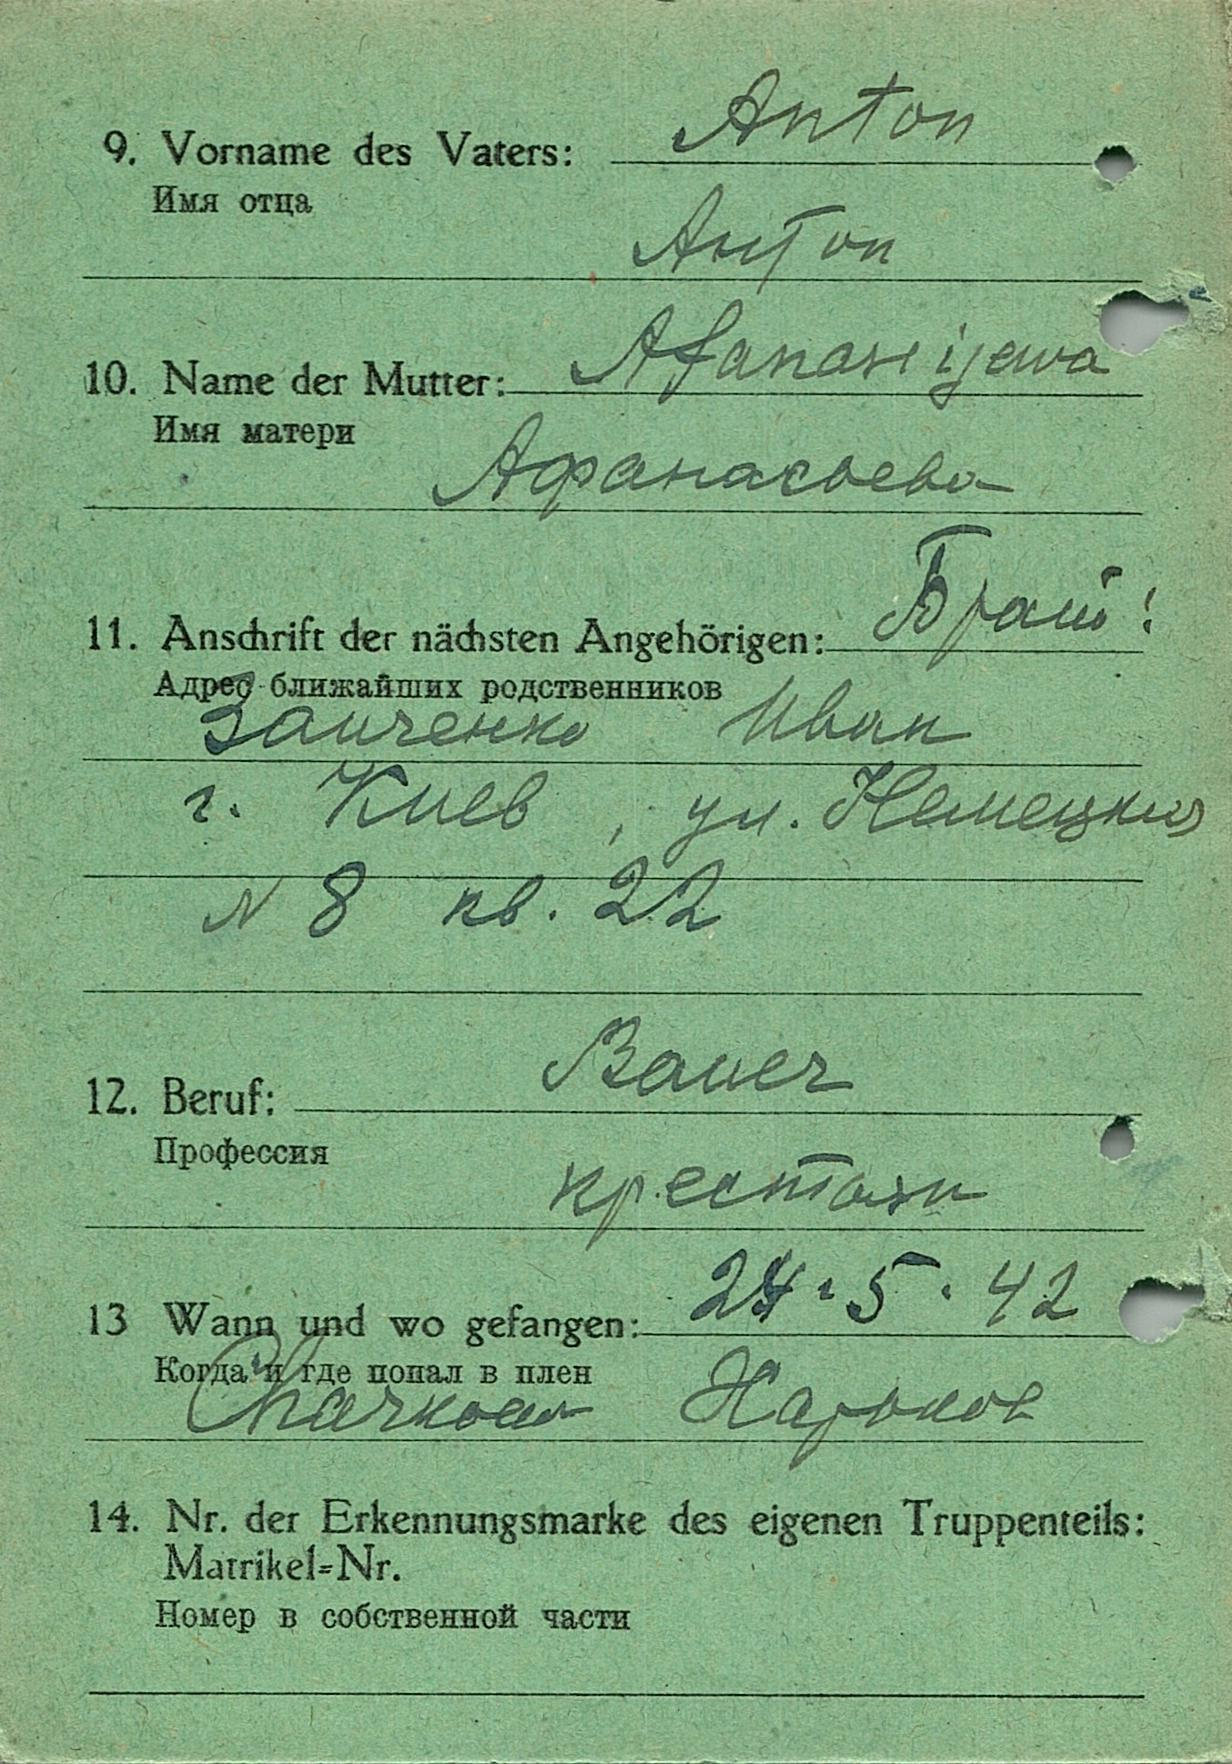 9. Vorname des Vaters: Anton
Имя отца
Антон
10. Name der Mutter: Afanasijewa
Имя матери
Афанасьева
11. Anschrift der nächsten Angehörigen: Брат:
Адрес ближайших родственников
Заиченко Иван
г. Киев, ул. Немецкая
N 8 кв. 22
12. Beruf: Bauer
Профессия
крестьян
13 Wann und wo gefangen: 24.5.42
Когда и где попал в плен
Charkow Харьков
14. Nr. der Erkennungsmarke des eigenen Truppenteils:
Matrikel=Nr.
Номер в собственной части